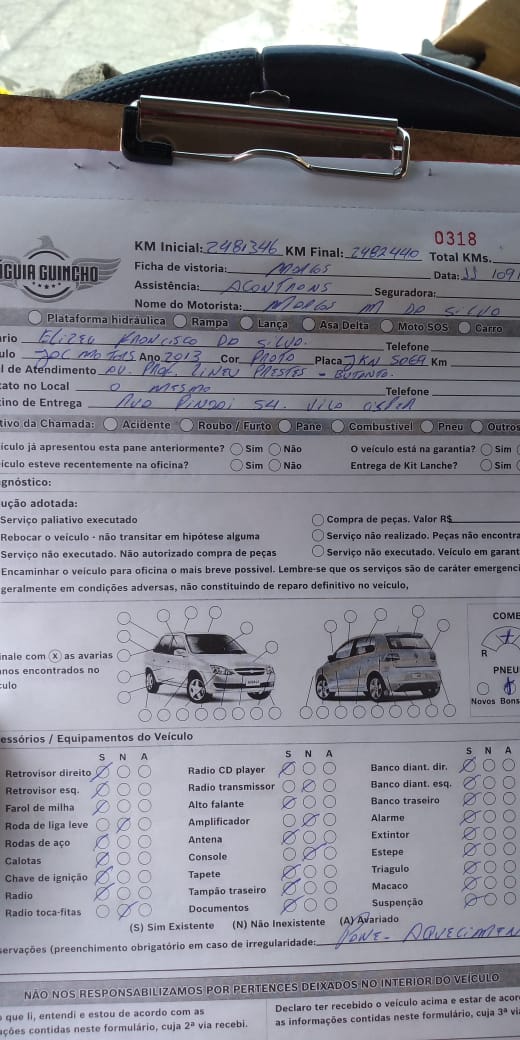 0318
KM Inicial: 2481346 KM Final: 2482440 Total KMs.
ÁGUIA GUINCHO
Ficha de vistoria:
Data: 11 109
Assistência: Seguradora:
Nome do Motorista:
Plataforma hidráulica Rampa Lança Asa Delta Moto SOS Carro
ário ELIZEU FRANCISCO DA SILVA. Telefone
ulo JAC MOTORS Ano 2013 Cor PRATA Placa JKN 5069 Km
l de Atendimento AV. PROF. LINEU PRESTES - BUTANTA.
tato no Local O MESMO Telefone
tino de Entrega 54. VILA
tivo da Chamada: Acidente Roubo / Furto Pane Combustível Pneu Outros
ículo já apresentou esta pane anteriormente? Sim Não O veículo está na garantia? Sim
ículo esteve recentemente na oficina? Sim Não Entrega de Kit Lanche? Sim
agnóstico:
ução adotada:
Serviço paliativo executado Compra de peças. Valor R$
Rebocar o veículo - não transitar em hipótese alguma Serviço não realizado. Peças não encontra
Serviço não executado. Não autorizado compra de peças Serviço não executado. Veículo em garant
Encaminhar o veículo para oficina o mais breve possível. Lembre-se que os serviços são de caráter emergenci
geralmente em condições adversas, não constituindo de reparo definitivo no veículo,
COMB
R
inale com x as avarias
anos encontrados no
culo
PNEU
Novos Bons
essórios / Equipamentos do Veículo
S N A S N A S N A
Retrovisor direito Radio CD player Banco diant. dir.
Retrovisor esq. Radio transmissor Banco diant. esq.
Farol de milha Alto falante Banco traseiro
Roda de liga leve Amplificador Alarme
Rodas de aço Antena Extintor
Calotas Console Estepe
Chave de ignição Tapete Triagulo
Radio Tampão traseiro Macaco
Radio toca-fitas Documentos Suspenção
(S) Sim Existente (N) Não Inexistente (A) Avariado
servações (preenchimento obrigatório em caso de irregularidade: PANE - AQUECIMEN
NÃO NOS RESPONSABILIZAMOS POR PERTENCES DEIXADOS NO INTERIOR DO VEÍCULO
o que li, entendi e estou de acordo com as
ações contidas neste formulário, cuja 2ª via recebi.
Declaro ter recebido o veículo acima e estar de acor
as informações contidas neste formulário, cuja 3ª vi